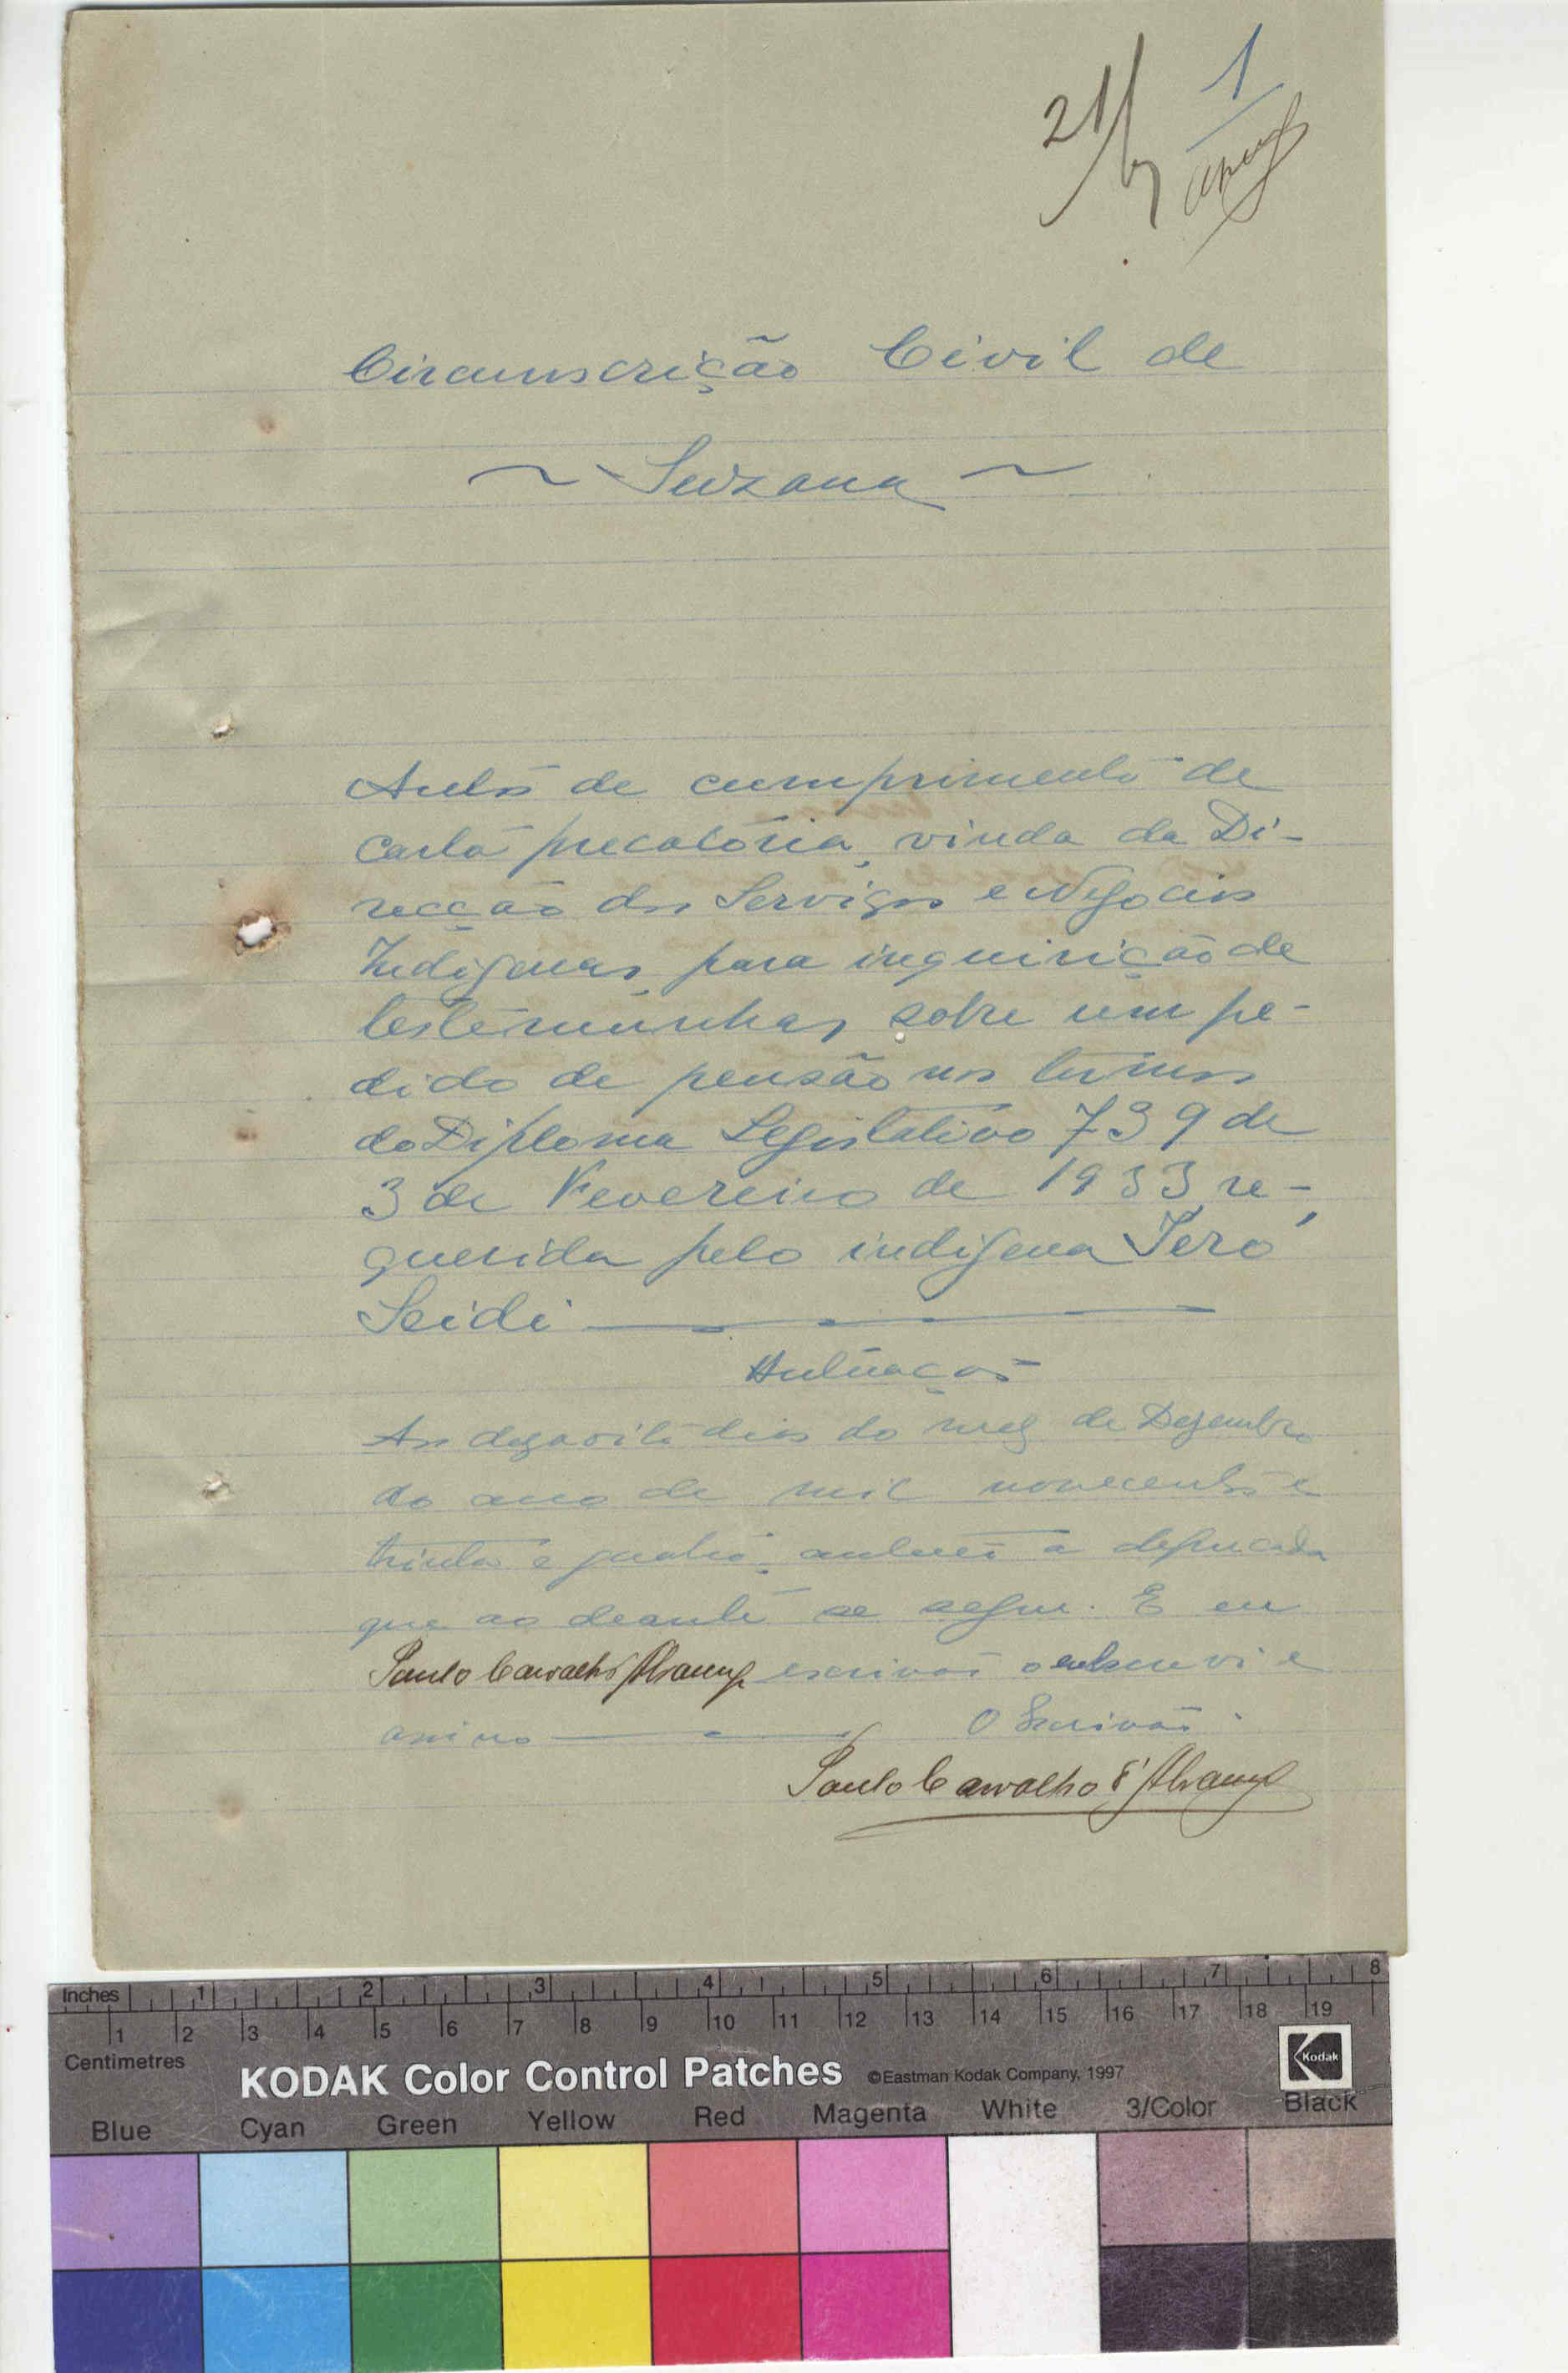 21
1
Circunscrição Civil de
~ Suzana ~
Autos de cumprimento de
carta precatória, vinda da Di-
recção dos Serviços e Negocios
Indigenas, para inquirição de
testemunhas, sobre um pe-
dido de pensão nos termos
do Diploma Legislativo 739 de
3 de Fevereiro de 1933, re-
querida pelo indigena Jeró
Seidi
Autuação
Aos dezaoito dias do mez de Dezembro
do ano de mil novecentos e
trinta e quatro, autuei a deprecada
que ao deante se segue. E eu
Paulo Carvalho escrivão o subscrevi e
assino O Escrivão
Paulo Carvalho d'
Inches 1 2 3 4 5 6 7 8
1 2 3 4 5 6 7 8 9 10 11 12 13 14 15 16 17 18 19
Centimetres
KODAK Color Control Patches ©Eastman Kodak Company, 1997 Kodak
Blue Cyan Green Yellow Red Magenta White 3/Color Black